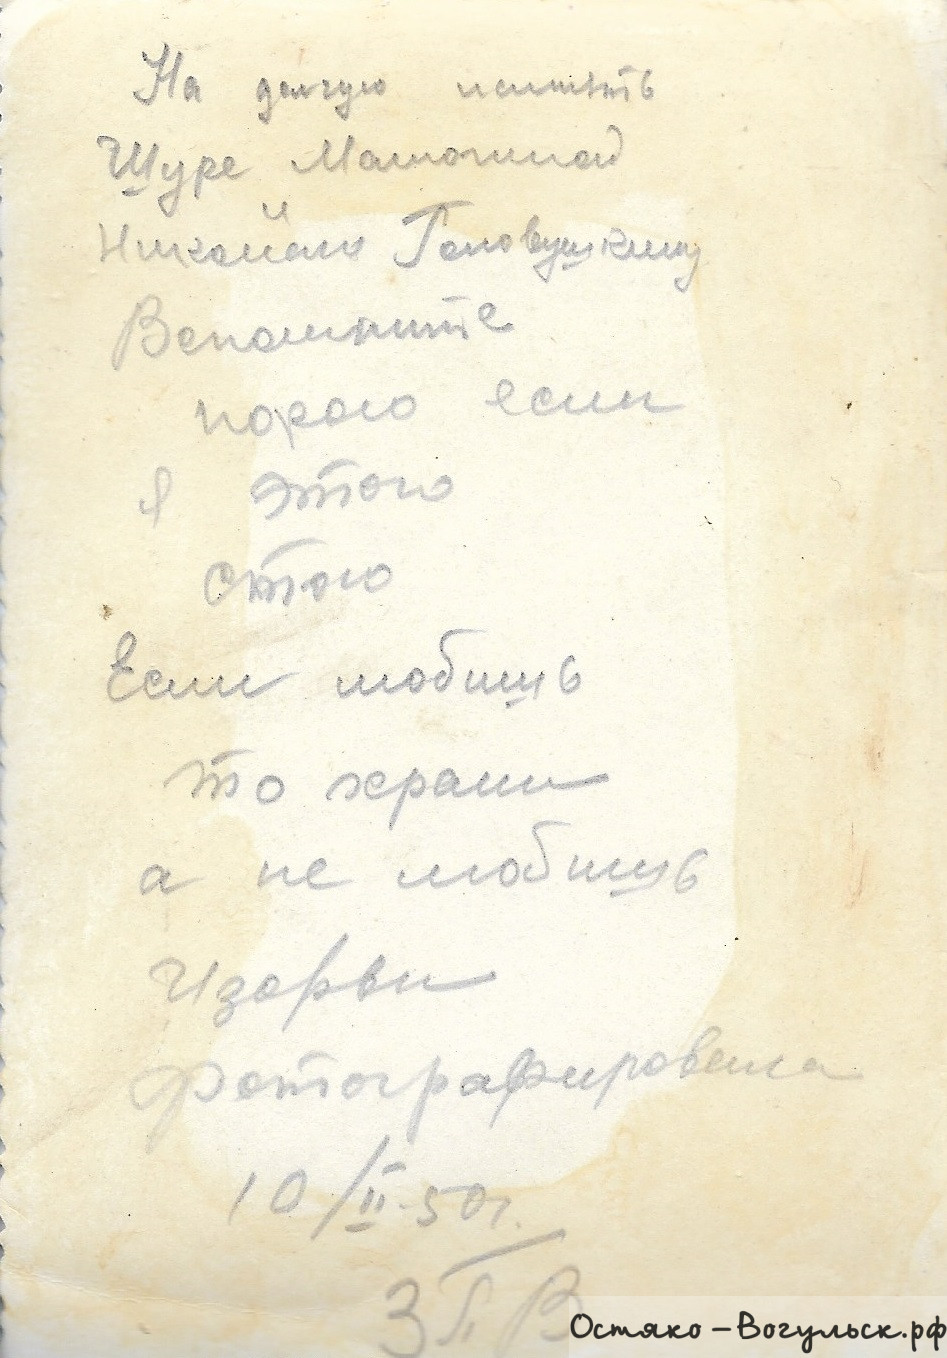 На долгую память
Шуре
Николаю Головушкину
Вспомните
порою если
я этого
стою
Если любишь
то храни
а не любишь
Изорви
Фотографировала
10/II-50г.
Остяко-Вогульск.рф